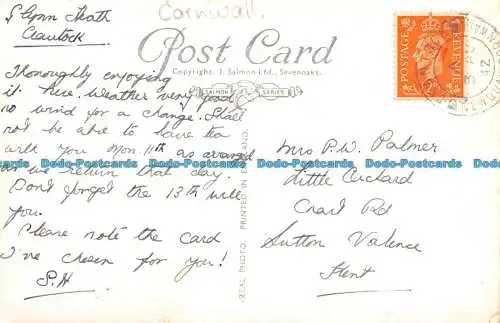 Cornwall.
Post Card
Copyright. J. Salmon Ltd., Sevenoaks.
SALMON SERIES
REAL PHOTO. PRINTED IN ENGLAND.
POSTAGE REVENUE
42
Thoroughly enjoying
it here, weather very good
no wind for a change. Shall
not be able to have tea
with you Mon 11th as arranged
as we return that day.
Dont forget the 13th will
you.
Please note the card
I've chosen for you!
S.H
Mrs P.W. Palmer
Little Orchard
Rd
Sutton Valence
Kent
Bado-Postcards Bado-Postcards Bado-Postcards Bado-Postcards Bado-Postcards